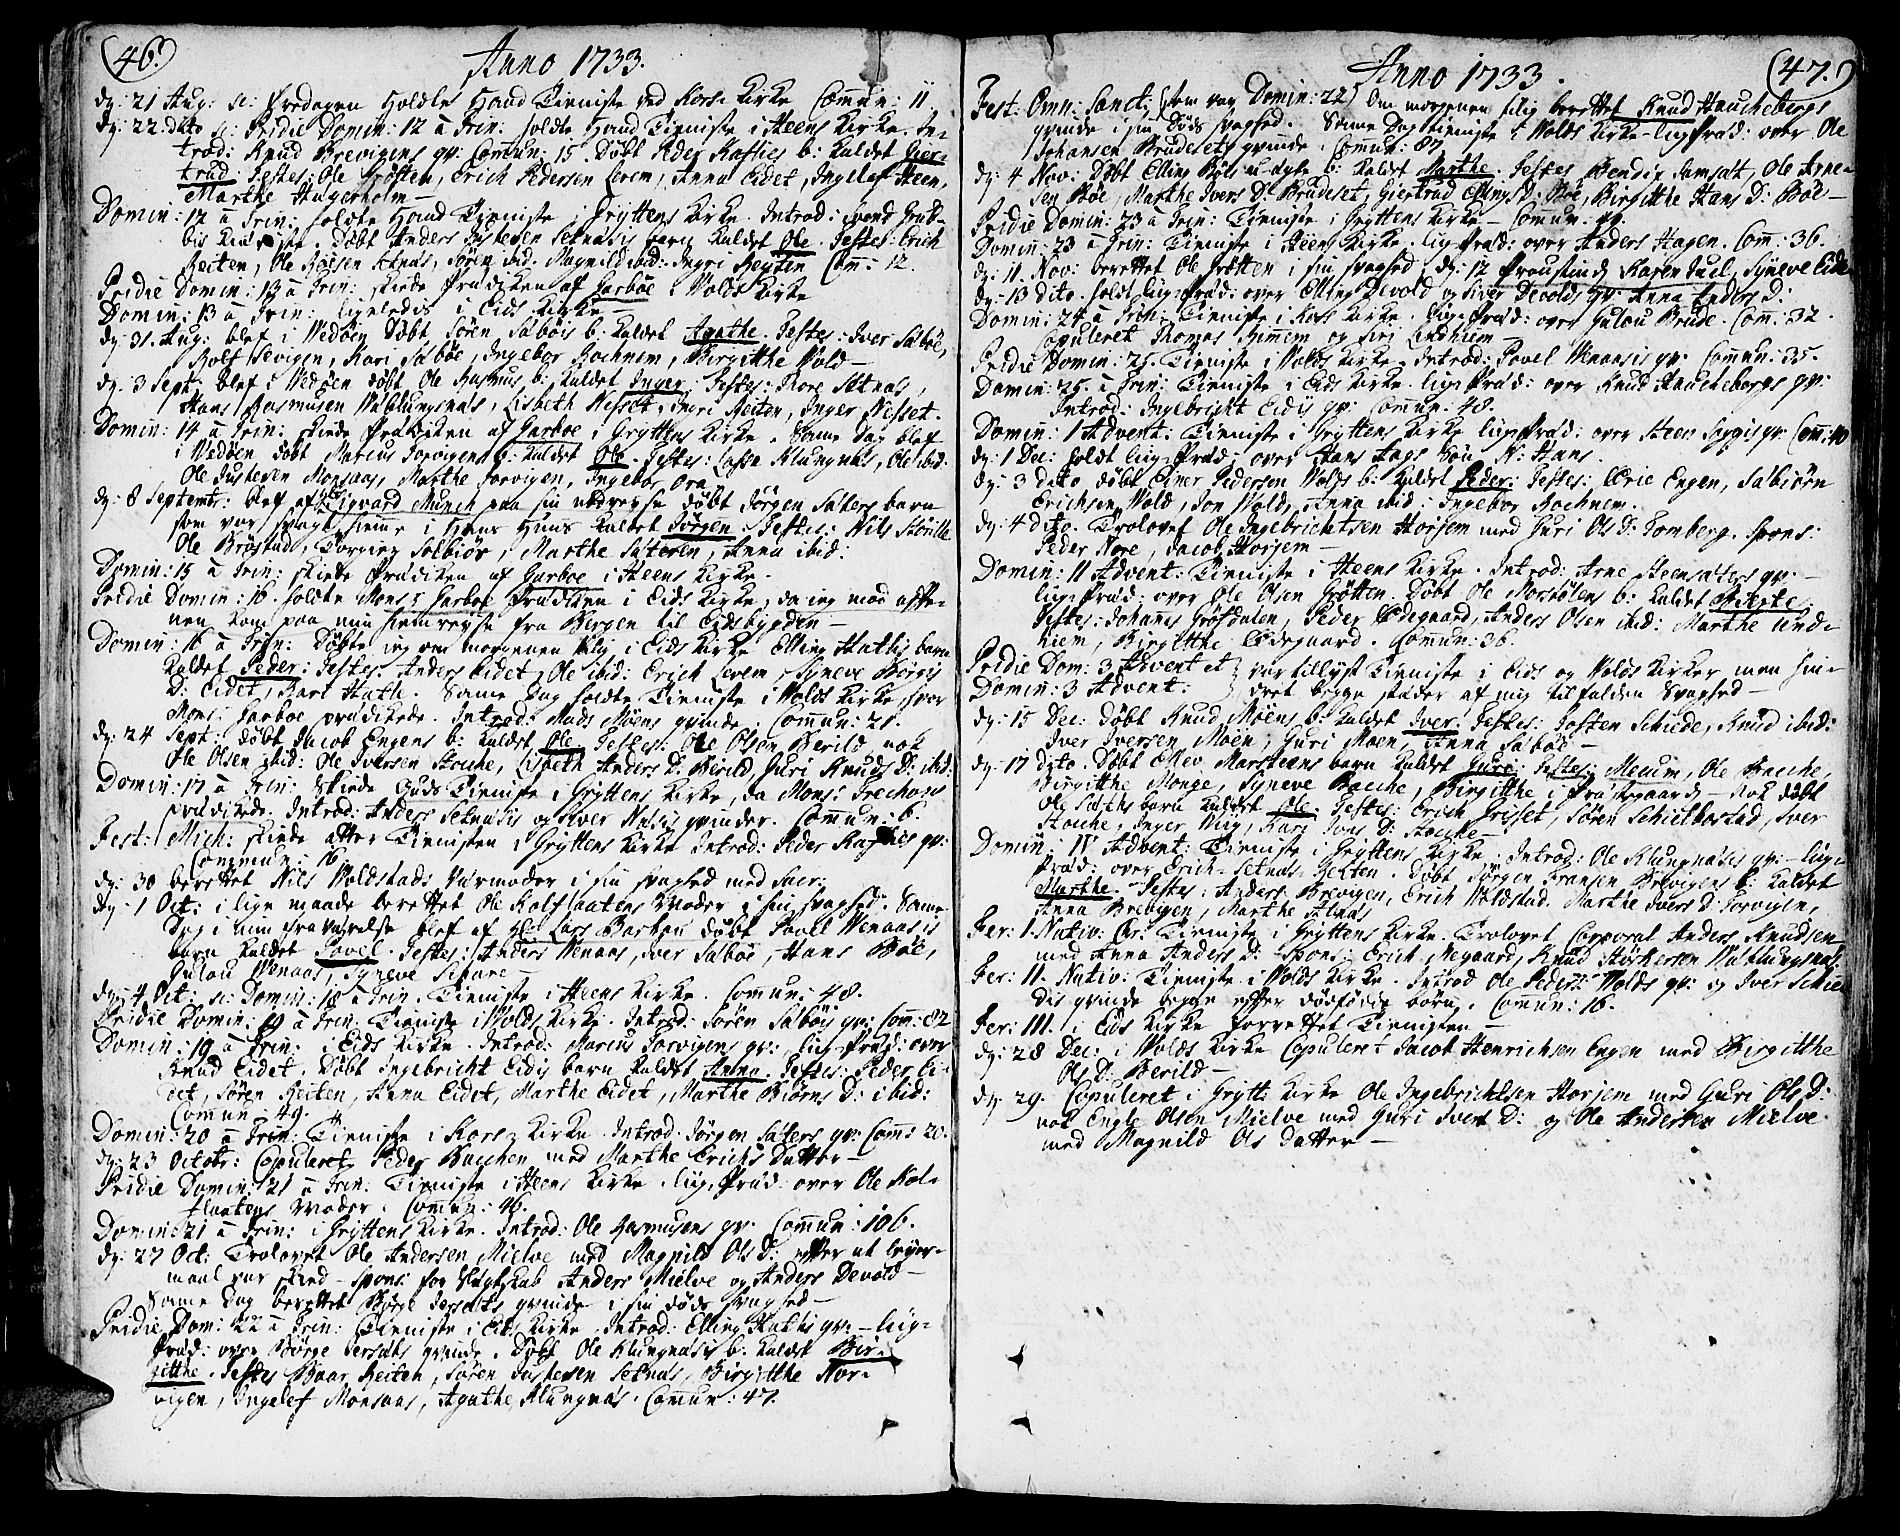 46.
Anno 1733.
dg: 21 Aug: sc: Fredagen holdte Hand Tieniste ved Kors Kirke Comun: 11.
dg: 22. dito sc: Pridie Domin: 12 à Trin: holdte Hand Tieniste i Heens Kirke. In-
trod: Knud Brevigens qv: Comun: 15. Døbt Peder Kafties b: kaldet Gier-
trud. Testes: Ole Grøtten, Erich Pedersen Lerem, Anna Eidet, Ingelef Heen,
Marthe Hagerholm —
Domin: 12 à Trin: holdte Hand Tieniste i Gryttens Kirke. Introd:
Døbt Anders Justesen Setnæsis barn kaldet Ole. Testes: Erich
Reiten, Ole Setnæs, Søren ibid. Magnild ibid: Ingri Reiten Com: 12.
Pridie Domin: 13 à Trin: skiede Prædiken af Garboe i Wolds Kirke
Domin: 13 à Trin: ligeledis i Eids Kirke —
dg: 31. Aug: blef i Wedøen Døbt Søren Sæbøis b: kaldet Agathe. Testes: Iver Sæbøe,
Rolf Sevigen, Kari Sæbøe, Ingebor Bochnem, Birgitthe Wold —
dg: 3 Sept: blef i Wedøen døbt Ole Rasmus b: kaldet Inger. Testes: Tore Setnæs,
Hans Rasmusen Wæblungsnæs, Lisbeth Nesset, Ingri Reiten, Inger Nesset.
Domin: 14 à Trin: skiede Prædiken af Garboe i Gryttens Kirke. Samme Dag blef
i Wedøen døbt Marius Torvigens b: kaldet Ole. Testes: Lasse Klungnæs, Ole ibid:
Ole Justesen Monsaas, Marthe Torvigen, Ingebor Ora.
dg: 8 Septembr: blef af Hr Sigvard Munch paa sin udreyse døbt Jørgen Sæters barn
som var svagt hiemme i hans Huus kaldet Jørgen. Testes: Nils
Ole Brøstad, Torging Solbiør, Marthe Sæteren, Anna ibid:
Domin: 15 à Trin: skiede Prædiken af Garboe i Heens Kirke.
Pridie Domin: 16. holdte Mons: Garboe Prædiken i Eids Kirke, da ieg mod affte-
nen kom paa min hiemreyse fra Bergen til Eidsbygden —
Domin: 16 à Trin: Døbte ieg om morgenen tilig i Eids Kirke Elling Hathis barn
kaldet Peder: Testes. Anders Eidet, Ole ibid: Erich Lerem, Syneve Børgis
D: Eidet, Kari Hathe. Samme Dag holdte Tieniste i Wolds Kirke, hvor
Mons: Garboe prædikede. Introd: Mads Møens qvinde. Comun: 21.
dg: 24 Sept: døbt Jacob Engens b: kaldet Ole. Testes: Ole Olsen Berild, nok
Ole Olsen ibid: Ole Iversen Stocke, Lisbeth Anders D: Berild, Guri Knuds D: ibid:
Domin: 17 à Trin: skiede Guds Tieniste i Gryttens Kirke, da Mons: Frechow
prædikede. Introd: Anders Setnæsis og Iver Næsis qvinder. Comun: 6.
Fest: Mich: skiede atter Tienisten i Gryttens Kirke Introd: Peder qv:
Comun: 16.
dg: 30 berettet Nils Woldstads Værmoder i sin svaghed med Sacr:
dg: 1 Oct: i lige maade berettet Ole Kolflaatens Moder i sin svaghed. Samme
Dag i min fraværelse blef af Hr Lars Barhou døbt Povel Wenaasis
barn kaldet Povel. Testes: Anders Wenaas, Iver Sæbøe, Hans Bøe,
Gulou Wenaas, Syneve
dg: 4 Oct: sc: Domin: 18 à Trin. Tieniste i Heens Kirke. Comun: 48.
Pridie Domin: 19 à Trin. Tieniste i Wolds Kirke. Introd: Søren Sæbøis qv: Com: 82
Domin: 19 à Trin: i Eids Kirke. Introd: Marius Torvigens qv: liig-Præd: over
Knud Eidet. Døbt Ingebricht Eidis barn kaldet Anna. Testes: Peder Ei-
det, Søren Reiten, Anna Eidet, Marthe Eidet, Marthe Biørns D: ibid:
Comun: 49.
Domin: 20 à Trin: Tieniste i Kors Kirke. Introd: Jørgen Sæters qv: Com: 20.
dg: 23 Octobr: Copuleret Peder Bacchen med Marthe Erichs Datter —
Pridie Domin: 21 à Trin: Tieniste i Heens Kirke. liig-Præd: over Ole Kol-
flaatens Moder. Comun: 46.
Domin: 21 à Trin: i Gryttens Kirke. Introd: Ole Rasmusens qv: Comun: 106.
dg: 27 Oct: Trolovet Ole Andersen Mielve med Magnild Ols D: efter at leyer-
maal var skied — Spons: for slægtskab Anders Mielve og Anders Devold —
Samme Dag berettet Børge qvinde i sin døds svaghed —
Pridie Dom: 22 à Trin: Tieniste i Eids Kirke. Introd: Elling Hathis qv: — liig-
Præd: over Børge qvinde. Døbt Ole Klungnæsis b: kaldet Bir-
gitthe. Testes Baar Reiten, Søren Justesen Setnæs, Birgitthe Tor-
vigen, Ingelef Monsaas, Agathe Klungnæs. Comun: 47.
47.
Anno 1733.
Fest: Omn: Sanct: (som var Domin: 22) Om morgenen tilig berettet Knud Hauchebergs
qvinde i sin Døds svaghed. Samme Dag tieniste i Wolds Kirke — liig-Præd: over Ole
Johansen Brudesets qvinde. Comun: 87.
dg: 4 Nov: Døbt Elling Bøis u-ægte b: kaldet Marthe. Testes Bendix Samsæt, Ole Arne-
sen Bøe, Marthe Ivers D: Brudeset, Giertrud Ellings D: Bøe, Birgitthe Hans D: Bøe —
Pridie Domin: 23 à Trin: Tieniste i Gryttens Kirke — Comun:
Domin: 23 à Trin: Tieniste i Heens Kirke. liig-Præd: over Anders Hagen. Com: 36.
dg: 11. Nov: berettet Ole Grøtten i sin svaghed, dg: 12 Karen Juel, Syneve Eide
dg: 13 dito. holdt liig-Præd: over Elling Devold og Siver Devolds qv: Anna Anders D:
Domin: 24 à Trin: Tieniste i Kors Kirke. liig-Præd: over Gulou Brude. Com: 32.
Copuleret Thomas og Siri Lindhiem —
Pridie Domin: 25. Tieniste i Wolds Kirke. Introd: Povel Wenaasis qv: Comun: 35.
Domin: 25. à Trin: Tieniste i Eids Kirke. liig-Præd: over Knud Hauchebergs qv:
Introd: Ingebricht Eidis qv: Comun: 48.
Domin: 1 Advent: Tieniste i Gryttens Kirke liig-Præd: over Steen qv: Com: 40
dg: 1 Dec: holdt liig-Præd: over Hans Hags Søn N: Hans.
dg: 3 dito døbt Einer Pedersen Wolds b: kaldet Peder: Testes: Eric Engen, Sæbiørn
Erichsen Wold, Jon Wold, Anna ibid: Ingebor Bochnem.
dg: 4 dito. Trolovet Ole Ingebrichtsen Horjem med Guri Ols D: Tomberg. Spons:
Peder Nore, Jacob Horjem —
Domin: 11 Advent: Tieniste i Heens Kirke. Introd: Arne Steensæters qv: —
liig-Præd: over Ole Olsen Grøtten. Døbt Ole Morstølens b: kaldet
Testes: Johannes Grøfdalen, Peder Ødegaard, Anders Olsen ibid: Marthe Lind-
hiem, Birgitthe Ødegaard. Comun: 36.
Pridie Dom: 3 Advent et } var tillyst Tieniste i Eids og Wolds Kirker men hin-
Domin: 3 Advent: } dret begge stæder af mig tilfalden Svaghed —
dg: 15 Dec: døbt Knud Møens b: kaldet Iver. Testes: Tosten Schiede, Knud ibid:
Iver Iversen Møen, Guri Møen, Anna Sæbøe —
dg: 17 dito. Døbt Ellev Marsteens barn kaldet Guri: Testes: Mecum, Ole Bacche,
Birgitthe Monge, Syneve Bacche, Birgitthe i Præstegaard — Nok døbt
Ole Sæths barn kaldet Ole. Testes: Erich Grisset, Søren Schielbostad, Iver
Stocke, Inger Wiig, Kari Jons D: Stocke —
Domin: IV Advent: Tieniste i Gryttens Kirke. Introd: Ole Klungnæsis qv: — liig-
Præd: over Erich Setnæs Døbt Jørgen Fransen Brevigens b: kaldet
Marthe. Testes: Anders Brevigen, Erich Woldstad. Marthe Ivers D: Torvigen,
Anna Brevigen, Marthe Setnæs.
Fer: 1. Nativ: Chr: Tieniste i Gryttens Kirke. Trolovet Corporal Anders Knudsen
med Anna Anders D: Spons: Erich Negaard, Knud Størkersen Wæblungsnæs
Fer: 11. Nativ: Tieniste i Wolds Kirke. Introd Ole Peders: Wolds qv: og Iver Schie-
dis qvinde begge efter dødfødde børn. Comun: 16.
Fer: 111. i Eids Kirke forrettet Tienisten —
dg: 28 Dec: i Wolds Kirke Copuleret Jacob Henrichsen Engen med Birgitthe
Ols D: Berild —
dg: 29. Copuleret i Grytt: Kirke Ole Ingebrichtsen Horjem med Guri Ols D:
nok Engle Olsen Mielve med Guri Ivers D: og Ole Andersen Mielve
med Magnild Ols datter —